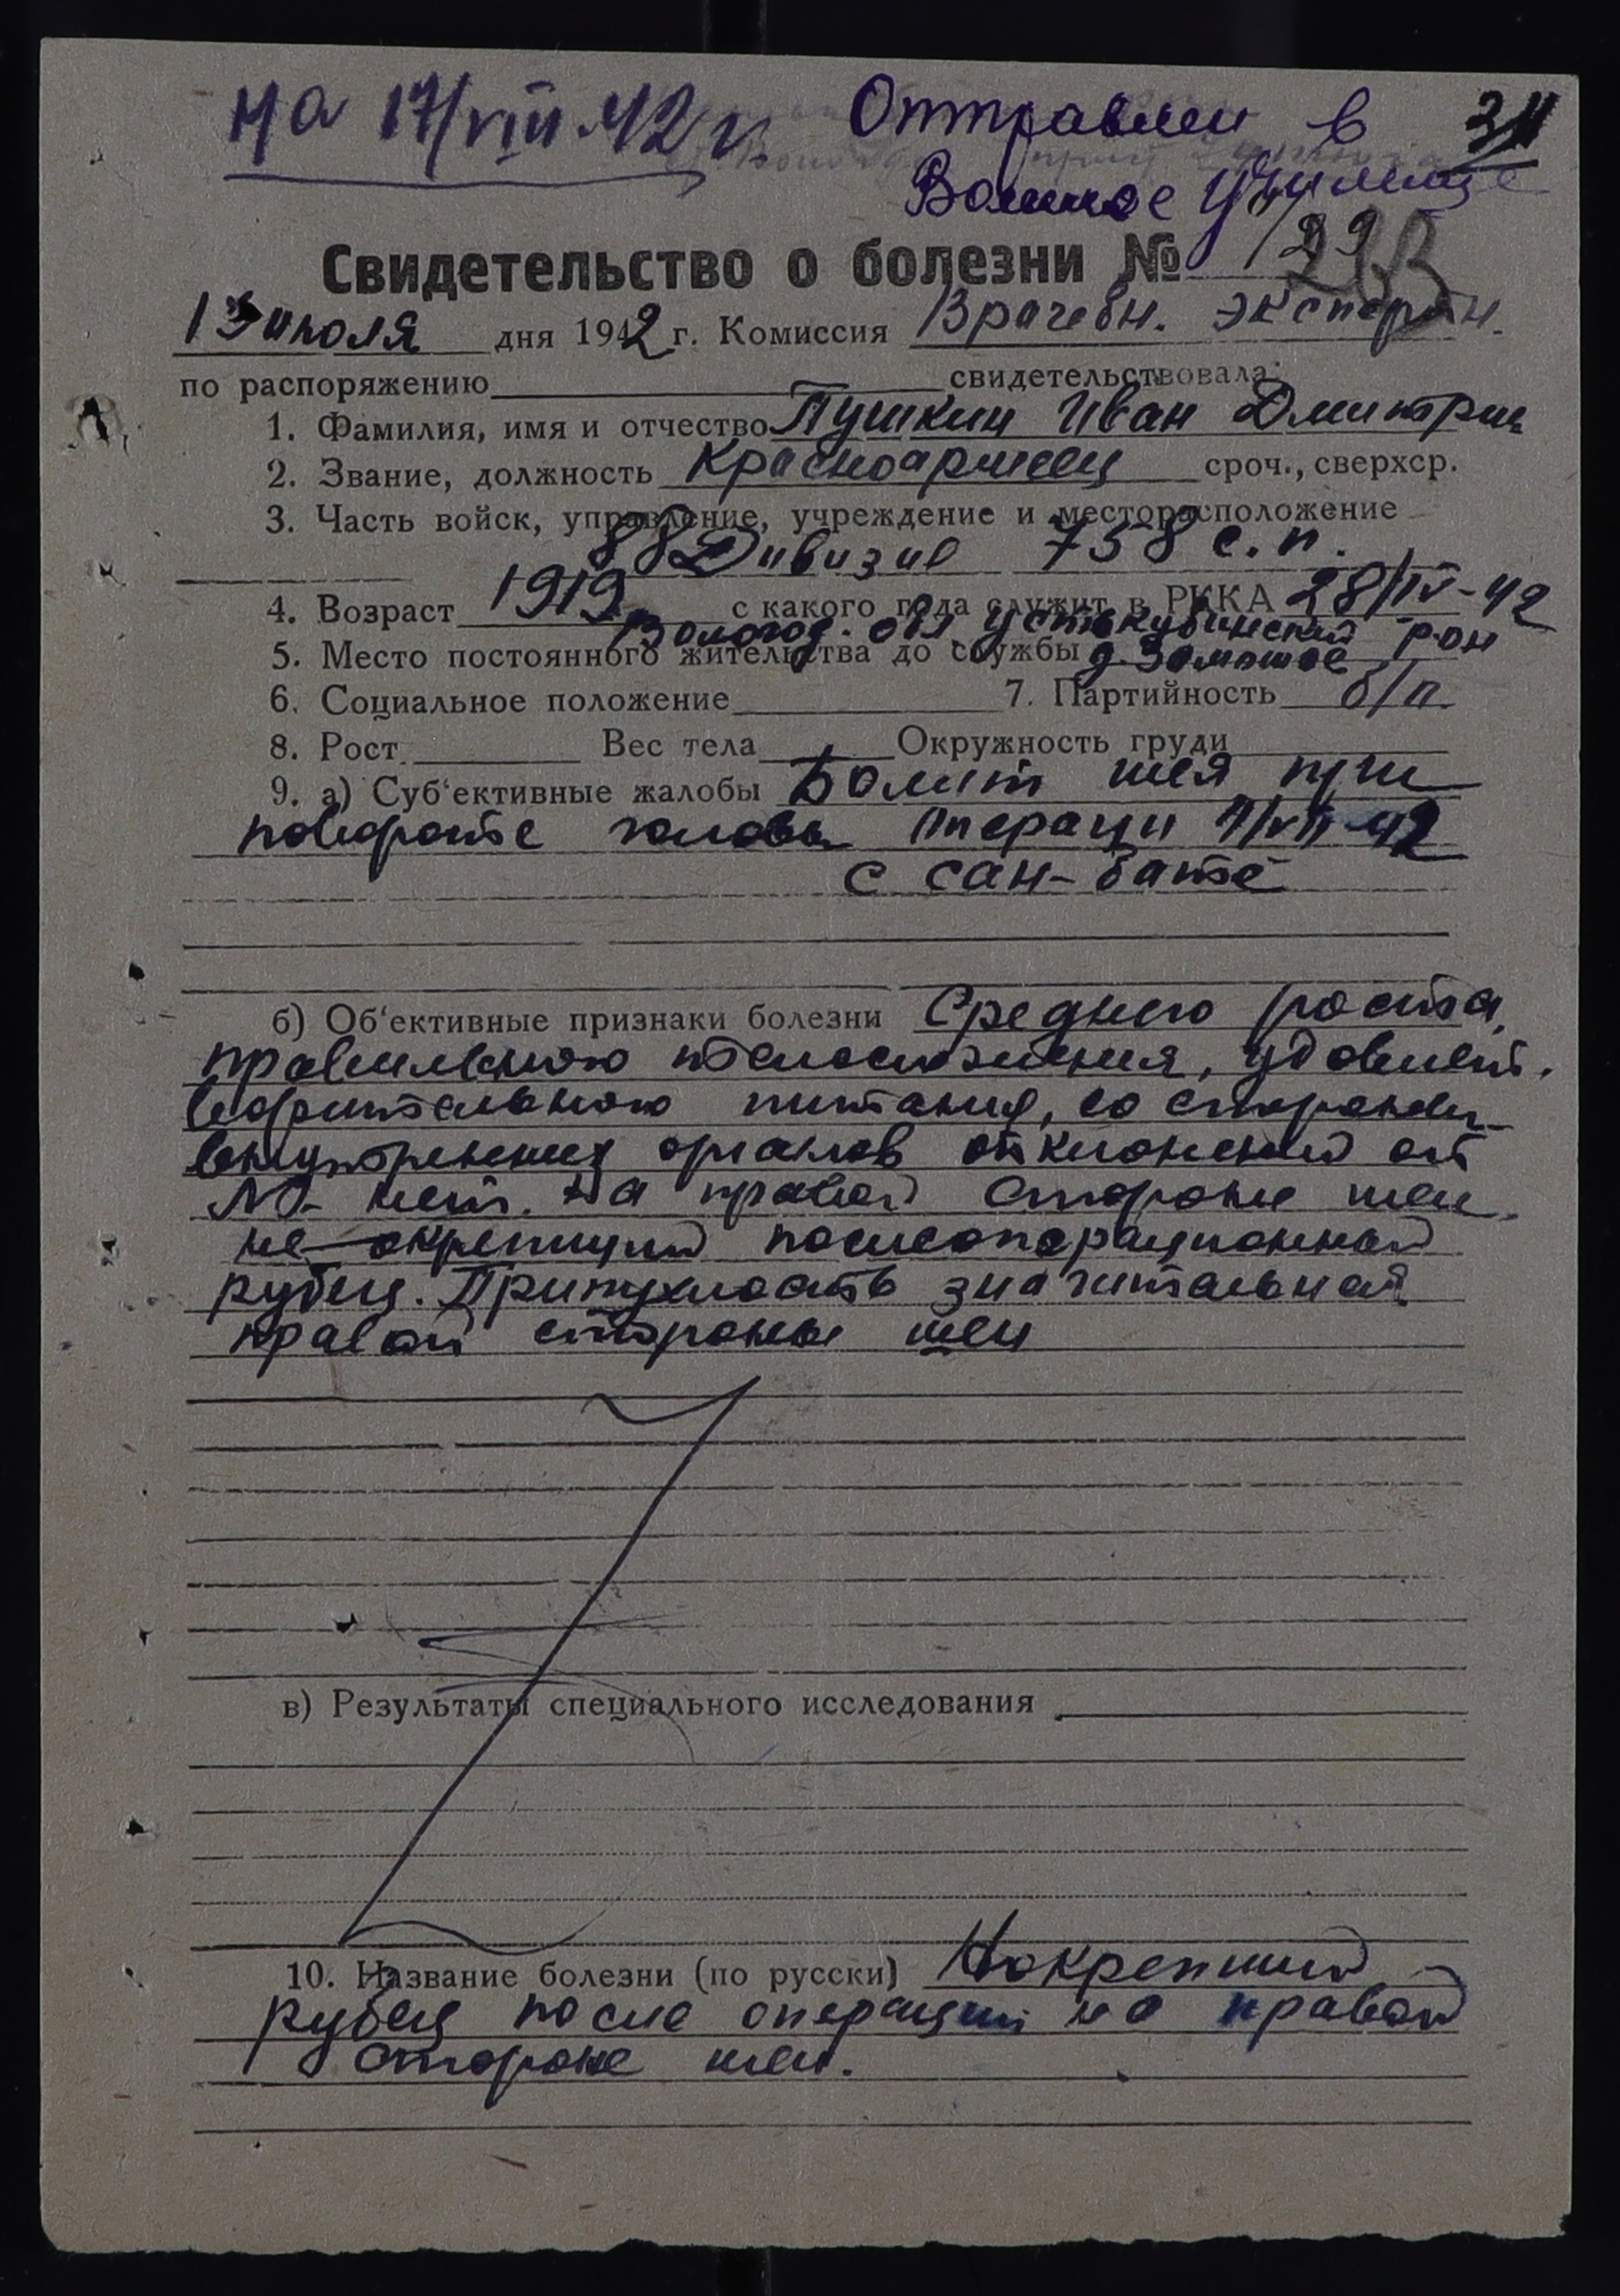 На 17/VIII 42 г. Отправлен в
Военное Училище
Свидетельство о болезни № 129
13 июля дня 1942 г. Комиссия Врачебн. экспертн.
по распоряжению свидетельствовала:
1. Фамилия, имя и отчество Пушкин Иван Дмитрич
2. Звание, должность Красноармеец сроч., сверхср.
3. Часть войск, управление, учреждение и месторасположение
88 Дивизия 758 с.п.
4. Возраст 1919 с какого года служит в РККА 28/IV-42
Вологод. обл Усть кубинский р-он
5. Место постоянного жительства до службы д.
6. Социальное положение 7. Партийность б/п.
8. Рост Вес тела Окружность груди
9. а) Суб‘ективные жалобы Болит шея при
повороте головы 42
с сан-бате
б) Об‘ективные признаки болезни Среднего роста,
правильного телосложения, удовлет.
ворительного питания, со стороны
внутренних органов отклонений от
N- нет. На правой стороне шеи
не окрепший послеоперационный
рубец. Припухлость значительная
правой стороны шеи
в) Результаты специального исследования
10. Название болезни (по русски) Неокрепший
рубец после операции на правой
стороне шеи.